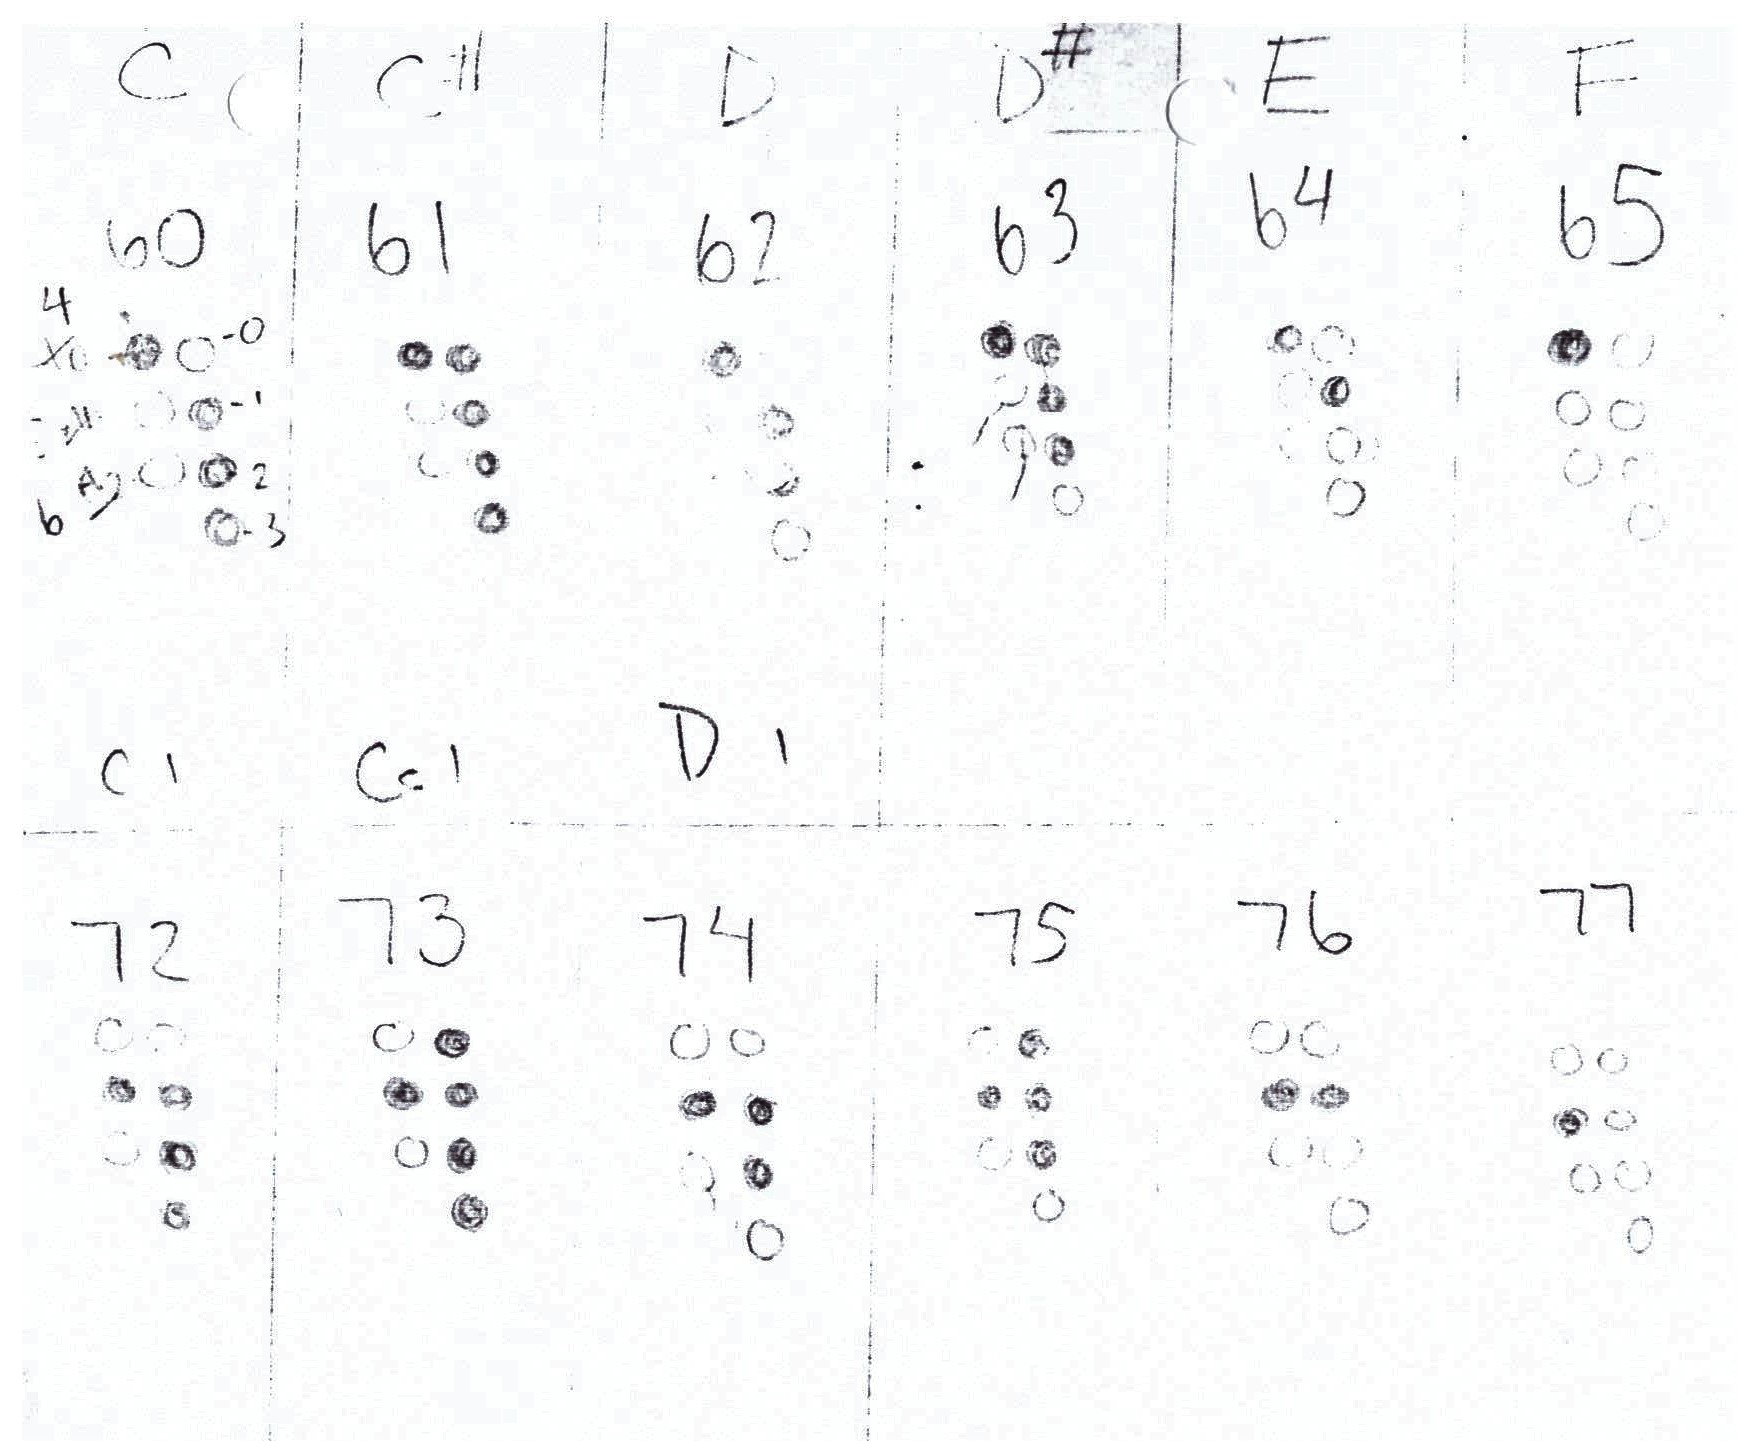 C C# D D# E F
60 61 62 63 64 65
4
-0
-1
2
6
-3
C 1 D 1
72 73 74 75 76 77